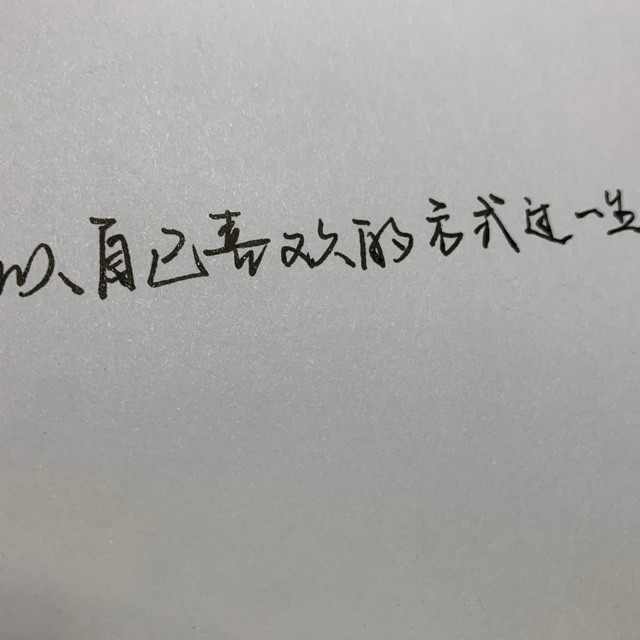 以自己喜欢的方式过一生